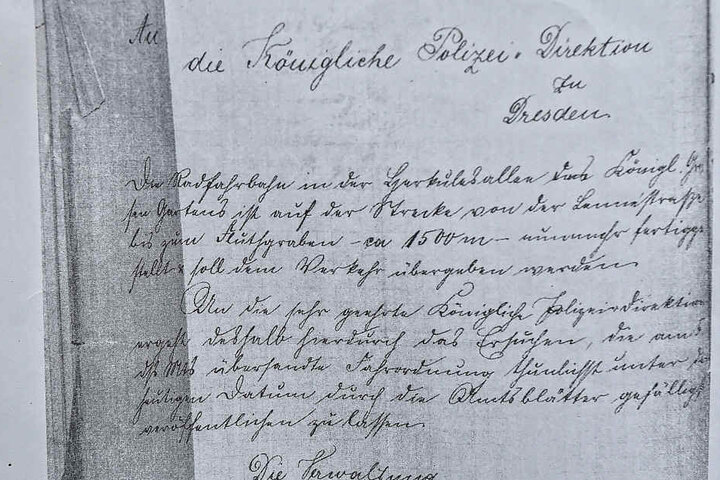 An
die Königliche Polizei-Direktion
zu
Dresden.
Die Radfahrbahn in der Herkulesallee des Königl. Gro
ßen Gartens ist auf der Strecke von der Lennéstraße
bis zum Fluthgraben – ca 1500 m – nunmehr fertigge
stellt & soll dem Verkehr übergeben werden
An die sehr geehrte Königliche Polizeidirektion
ergeht deshalb hierdurch das Ersuchen, die am
ds. Mts übersandte Fahrordnung thunlichst unter
heutigen Datum durch die Amtsblätter gefälligst
veröffentlichen zu lassen.
Die Verwaltung